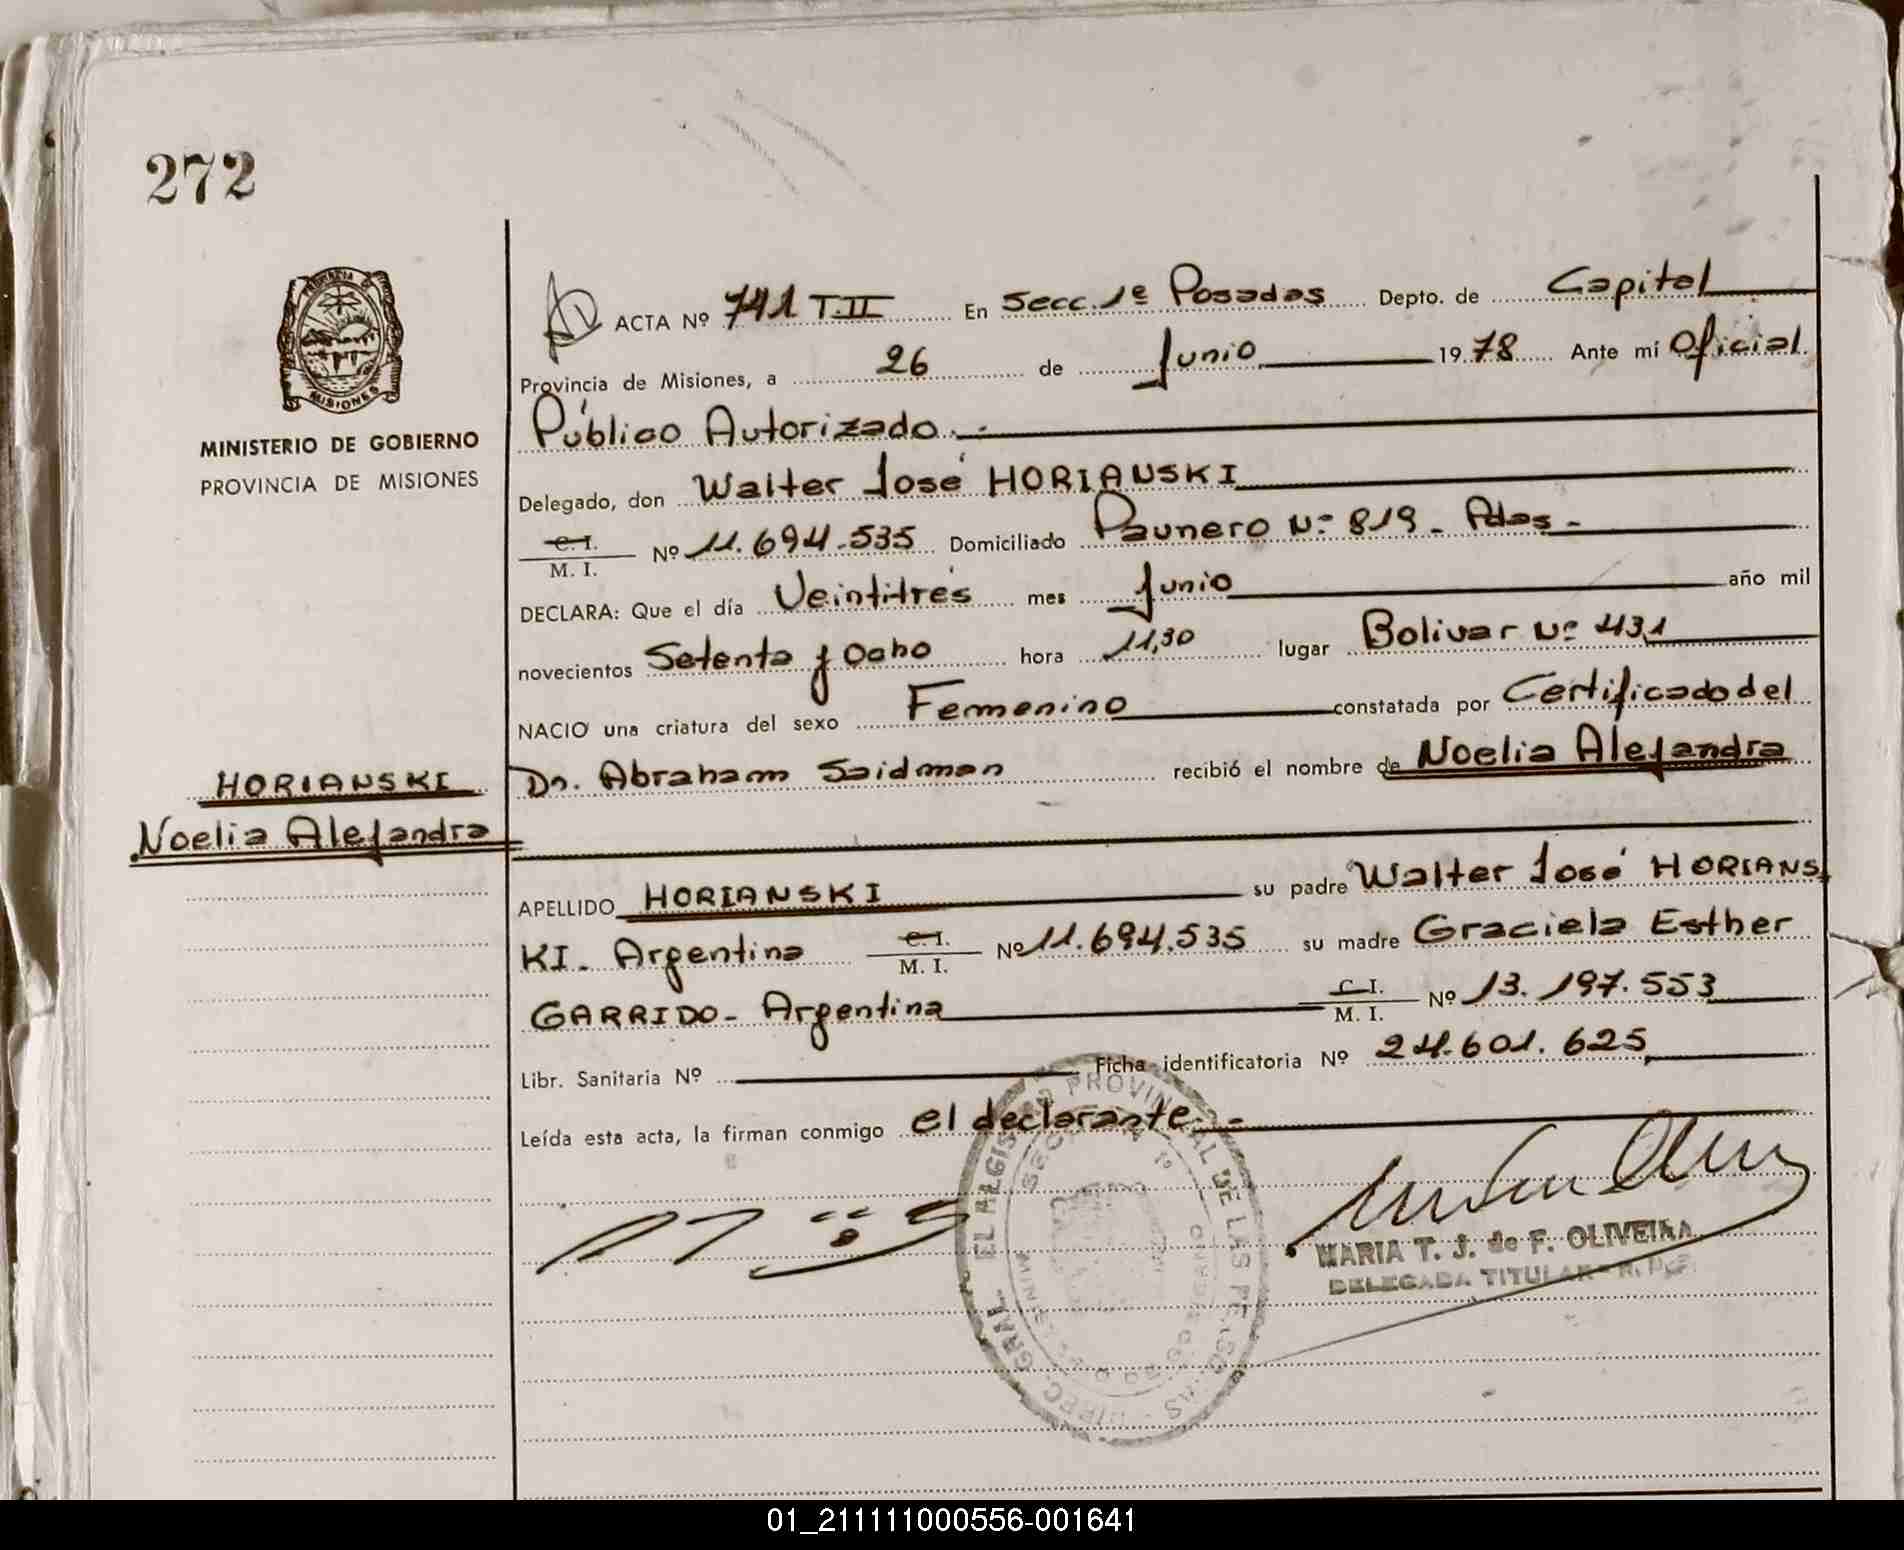 272
PROVINCIA DE
MISIONES
MINISTERIO DE GOBIERNO
PROVINCIA DE MISIONES
HORIANSKI
Noelia Alejandra
ACTA Nº 741 T.II En Secc. 1º Posadas Depto. de Capital
Provincia de Misiones, a 26 de Junio 1978 Ante mí Oficial
Público Autorizado.-
Delegado, don Walter José HORIANSKI
C. I.
M. I. Nº 11.694.535 Domiciliado Paunero Nº 819 - Pdas -
DECLARA: Que el día Veintitrés mes Junio año mil
novecientos Setenta y Ocho hora 11,30 lugar Bolivar Nº 431
NACIO una criatura del sexo Femenino constatada por Certificado del
Dr. Abraham Saidman recibió el nombre de Noelia Alejandra
APELLIDO HORIANSKI su padre Walter José HORIANS
KI - Argentina C. I. M. I. Nº 11.694.535 su madre Graciela Esther
GARRIDO - Argentina C. I. M. I. Nº 13.197.553
Libr. Sanitaria Nº Ficha identificatoria Nº 24.601.625
Leída esta acta, la firman conmigo el declarante.-
MARIA T. J. de F. OLIVEIRA
DELEGADA TITULAR - R. P.
01_211111000556-001641